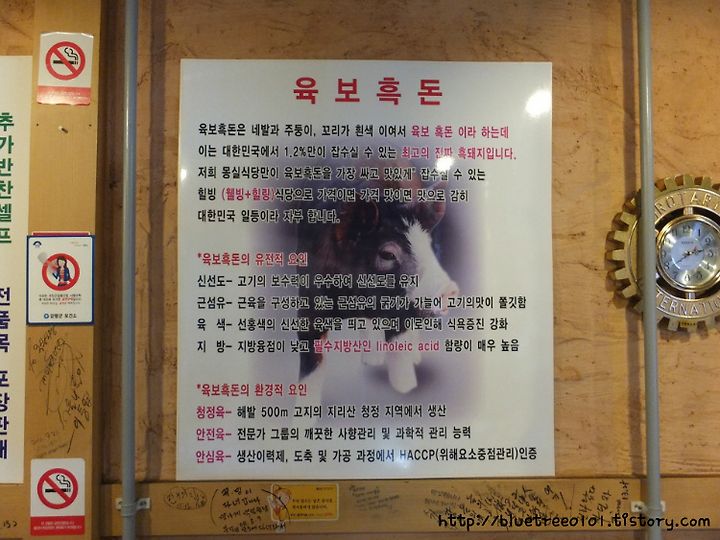 육보흑돈
육보흑돈은 네발과 주둥이, 꼬리가 흰색 이여서 육보 흑돈 이라 하는데
이는 대한민국에서 1.2%만이 잡수실 수 있는 최고의 진짜 흑돼지입니다.
저희 몽실식당만이 육보흑돈을 가장 싸고 맛있게" 잡수실 수 있는
힐빙 (웰빙+힐링)식당으로 가격이면 가격 맛이면 맛으로 감히
대한민국 일등이라 자부 합니다.
*육보흑돈의 유전적 요인
신선도- 고기의 보수력이 우수하여 신선도를 유지
근섬유- 근육을 구성하고 있는 근섬유의 굵기가 가늘어 고기의맛이 쫄깃함
육 색- 선홍색의 신선한 육색을 띄고 있으며 이로인해 식욕증진 강화
지 방- 지방융점이 낮고 필수지방산인 linoleic acid 함량이 매우 높음
*육보흑돈의 환경적 요인
청정육- 해발 500m 고지의 지리산 청정 지역에서 생산
안전육- 전문가 그룹의 깨끗한 사향관리 및 과학적 관리 능력
안심육- 생산이력제, 도축 및 가공 과정에서 HACCP(위해요소중점관리)인증
추가반찬셀프
전품목 포장판매
양평군 보건소
ROTARY
INTERNATIONAL
http://bluetree0101.tistory.com